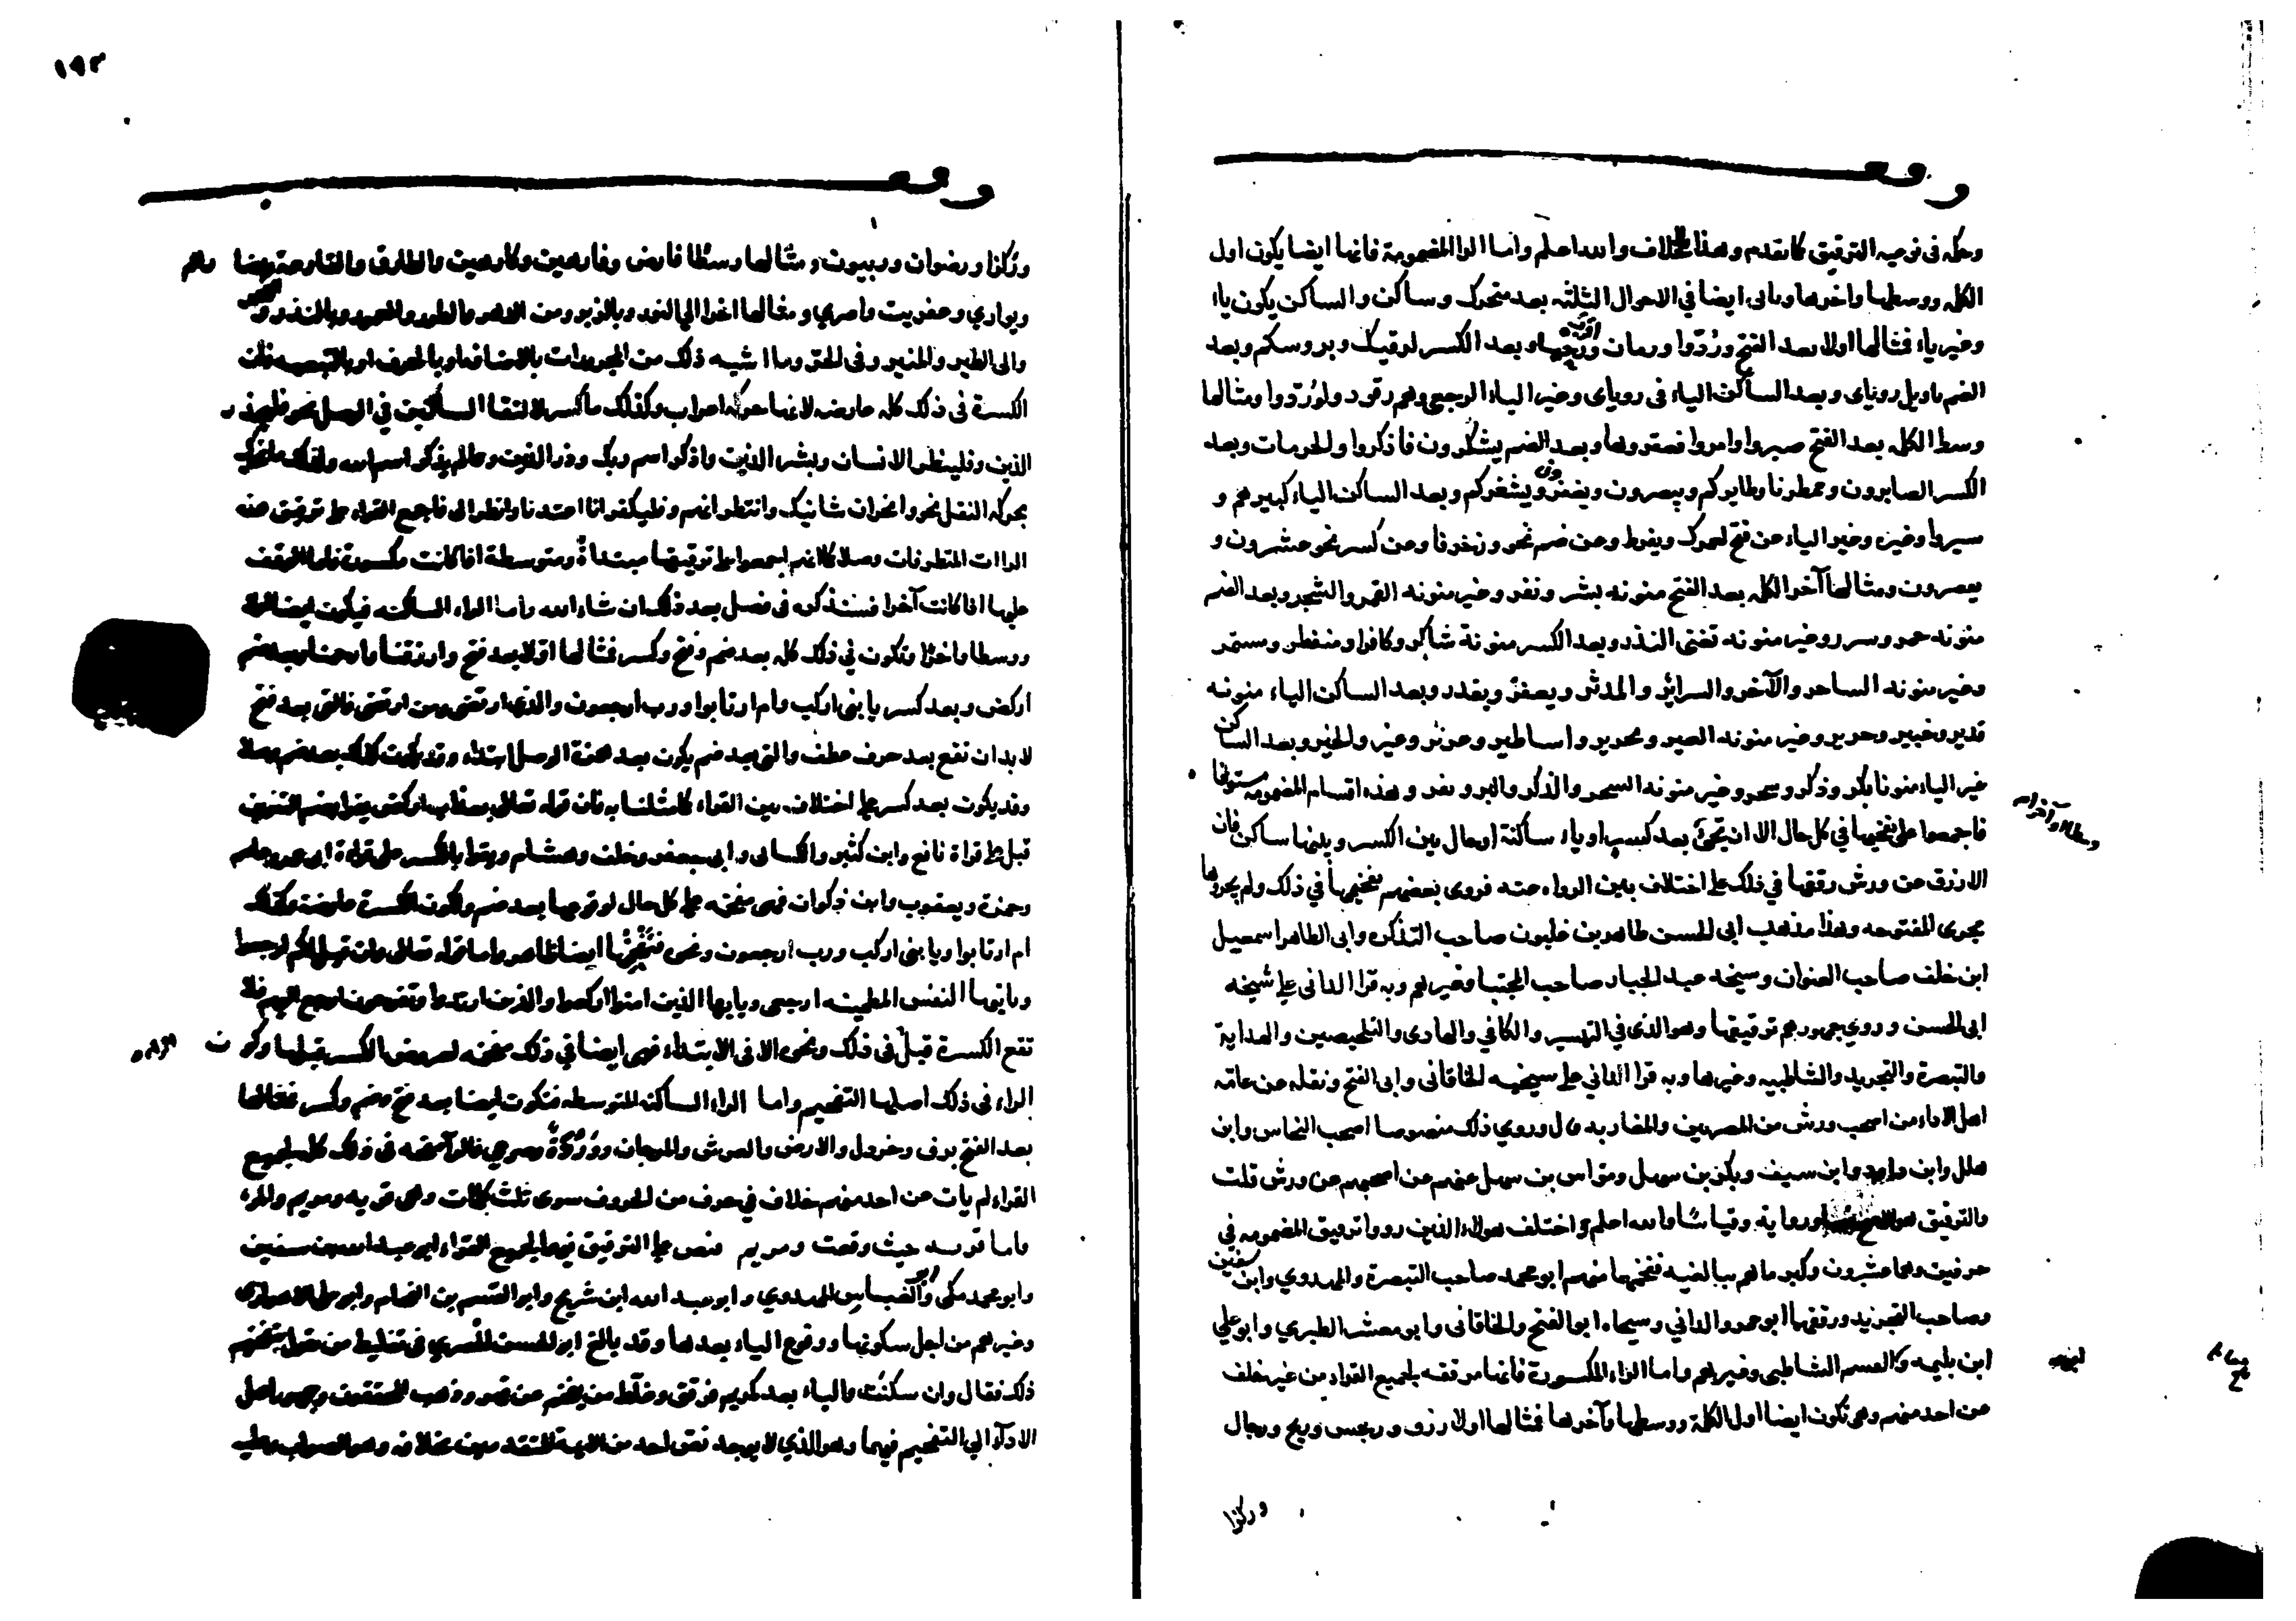 وقف
وحكه في توجيه الترقيق كما تقدم وهذا الخلاف والله اعلم واما الرا المضمومة فانها ايضا يكون اول
الكله ووسطها واخرها وياتى ايضا في الاحوال الثلثه بعد متحرك وساكن والساكن يكون ياء
وغير ياء فمثالها اولا بعد الفتح وردوا ورمان اقرب وبعد الكسر لرقيك وبروسكم وبعد
الضم تاويل روياى وبعد الساكن الياء في روياى وغير الياء الرجعى وهم رقود ولو ردوا ومثالها
وسط الكله بعد الفتح صبروا وامروا فعقروها وبعد الضم يشكرون فاذكروا والحرمات وبعد
الكسر الصابرون وممطرنا وطايركم ويبصرون ويغفرون ويشعركم وبعد الساكن الياء كبيرهم و
سيروا وغيره وغير الياء عن فتح لعمرك ويفرط وعن ضم نحو وزخرفا وعن كسر نحو عشرون و
يعصرون ومثالها آخر الكله بعد الفتح منونه بشر ونفر وغير منونه القمر والشجر وبعد الضم
منونه حمر وسرر وغير منونه تغنى النذر وبعد الكسر منونة شاكر وكافر ومنفطر ومستمر
وغير منونه الساحر والآخر والسرائر والمدثر ويغفر ويقدر وبعد الساكن الياء منونه
قدير وخبير وحرير وغير منونه العير وتحرير واساطير وعزير وغير والخير وبعد الساكن
غير الياء منونا بكر وذكر وسحر وغير منونه السحر والذكر والبر ونغر وهذه اقسام المضمومه مستوفاة
وسطا وآخرا
فاجمعوا على تفخيمها في كل حال الا ان تجئ بعد كسر او ياء ساكنة او حال بين الكسر وبينها ساكن فان
الازرق عن ورش رققها في ذلك على اختلاف بين الرواه عنه فروى بعضهم تفخيمها في ذلك ولم يجروها
مجرى المفتوحه وهذا مذهب ابى الحسن طاهر بن غلبون صاحب التذكره وابى الطاهر اسمعيل
ابن خلف صاحب العنوان وشيخه عبد الجبار صاحب المجتبا وغيرهم وبه قرا الدانى على شيخه
ابى الحسن وروي جمهورهم ترقيقها وهو الذى في التيسير والكافي والهادى والتلخيصين والهداية
والتبصرة والتجريد والشاطبيه وغيرها وبه قرا الداني على شيخيه الخاقانى وابى الفتح ونقله عن عامة
اهل الاداء من اصحب ورش من المصريين والمغاربه قال وروي ذلك منصوصا اصحب النحاس وابن
هلال وابن داود وابن سيف وبكر بن سهل ومواس بن سهل عنهم عن اصحبهم عن ورش قلت
والترقيق هو الاصح رواية وقياسا والله اعلم واختلف هولاء الذين رووا ترقيق المضمومه في
حرفين وهما عشرون وكبر ما هم ببالغيه ففخمها منهم ابو محمد صاحب التبصرة والمهدوي وابن سفين
وصاحب التجريد ورققها ابو عمرو الداني وشيخاه ابو الفتح والخاقانى وابو معشر الطبري وابو علي
ابن بليمه والقسم الشاطبي وغيرهم واما الراء المكسورة فانها مرققه لجميع القراء من غير خلف
عن احد منهم وهى تكون ايضا اول الكلة ووسطها وآخرها فمثالها اولا رزق ورجس وريح ورجال
وركزا
١٩٢
وقف
وركزا ورضوان وربيون ومثالها وسطا فارض وفارهين وكارهين والطارق والقارعة
ويوارى وعفريت واصري ومثالها اخرا الى النور وبالزبر ومن الدهر والطور
والى الطير والمنير وفى الحر وما اشبه ذلك من المجرورات بالاضافه او بالحرف او بالتبعيه فان
الكسرة في ذلك كله عارضه لانها حركه اعراب وكذلك ما كسر لالتقا الساكنين في الوصل نحو فليحذر
الذين وفلينظر الانسان وبشر الذين واذكر اسم ربك وذر الذين وما لم يذكر اسم الله وكذلك ما تحرك
بحركه النقل نحو وانحر ان شانيك وانتظر انهم وفليكفر انا اعتدنا وانظر الى فاجمع القراء على ترقيق هذه
الراات المتطرفات وصلا كما انهم اجمعوا على ترقيقها مبتدأة ومتوسطة اذا كانت مكسورة فاما الوقف
عليها اذا كانت آخرا فسنذكره في فصل بعد ذلك ان شاء الله واما الراء الساكنه فتكون ايضا اولا
ووسطا واخرا وتكون في ذلك كله بعد ضم وفتح وكسر فمثالها اولا بعد فتح وارزقنا وارحمنا وبعد ضم
اركض وبعد كسر يا بنى اركب وام ارتابوا ورب ارجعون والذى ارتضى ومن ارتضى فالتى بعد فتح
لا بد ان تقع بعد حرف عطف والتى بعد ضم يكون بعد همزة الوصل ابتداء وقد تكون كذلك بعد ضم وصلا
وقد يكون بعد كسر على اختلاف بين القراء كما مثلنا به فان قوله تعالى بعذاب اركض يقرا بضم التنوين
قبل على قراة نافع وابن كثير والكسائى وابى جعفر وخلف وهشام ويقرا بالكسر على قراءة ابى عمرو وعاصم
وحمزة ويعقوب وابن ذكوان فهى مفخمه على كل حال لوقوعها بعد ضم ولكون الكسرة عارضة وكذلك
ام ارتابوا ويا بنى اركب ورب ارجعون ونحوه فتفخيمها ايضا ظاهر واما قوله تعالى وان قيل لكم ارجعوا
ويايتها النفس المطمينه ارجعى ويايها الذين امنوا اركعوا والذين ارتدوا وتفرحون ارجع اليهم فلا
تقع الكسرة قبل في ذلك ونحوه الا في الابتداء فهى ايضا في ذلك مفخمه لعروض الكسر قبلها وكون
الراء في ذلك اصلها التفخيم واما الراء الساكنه المتوسطه فتكون ايضا بعد فتح وضم وكسر فمثالها
بعد الفتح برق وخردل والارض والعرش والمرجان ووردة وصرعى فالراء مفخمه في ذلك كله لجميع
القراء لم يات عن احد منهم خلاف في حرف من الحروف سوى ثلث كلمات وهى قريه ومريم والمرء
فاما قريه حيث وقعت ومريم فنص على الترقيق فيهما لجميع القراء ابو عبد الله بن سفين
وابو محمد مكى وابو العباس المهدوي وابو عبد الله ابن شريح وابو القسم بن الفحام وابو على الاهوازى
وغيرهم من اجل سكونها ووقوع الياء بعدها وقد بالغ ابو الحسن الحصري في تغليط من يقول بتفخيم
ذلك فقال وان سكنت والياء بعد كمريم فرقق وغلط من يفخم عن قهر وذهب المحققون وجمهور اهل
الاداء الى التفخيم فيهما وهو الذي لا يوجد نص احد من الايمة المتقدمين بخلافه وهو الصواب وعليه